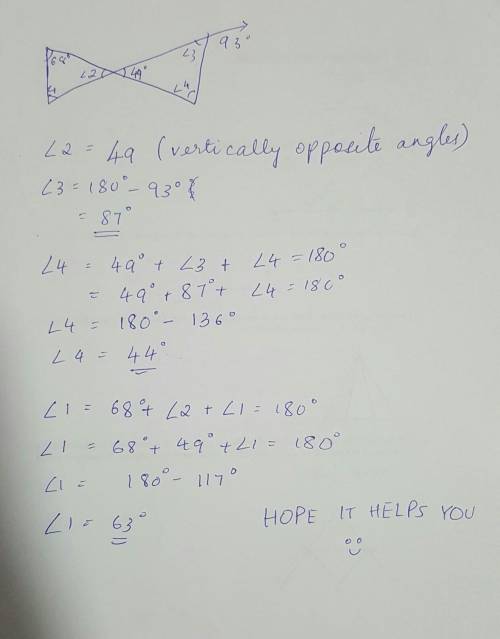 93°
68°
∠2
49°
∠3
∠1
∠4
∠2 = 49 (vertically opposite angles)
∠3 = 180° - 93°
= 87°
∠4 = 49° + ∠3 + ∠4 = 180°
= 49° + 87° + ∠4 = 180°
∠4 = 180° - 136°
∠4 = 44°
∠1 = 68° + ∠2 + ∠1 = 180°
∠1 = 68° + 49° + ∠1 = 180°
∠1 = 180° - 117°
∠1 = 63°
HOPE IT HELPS YOU